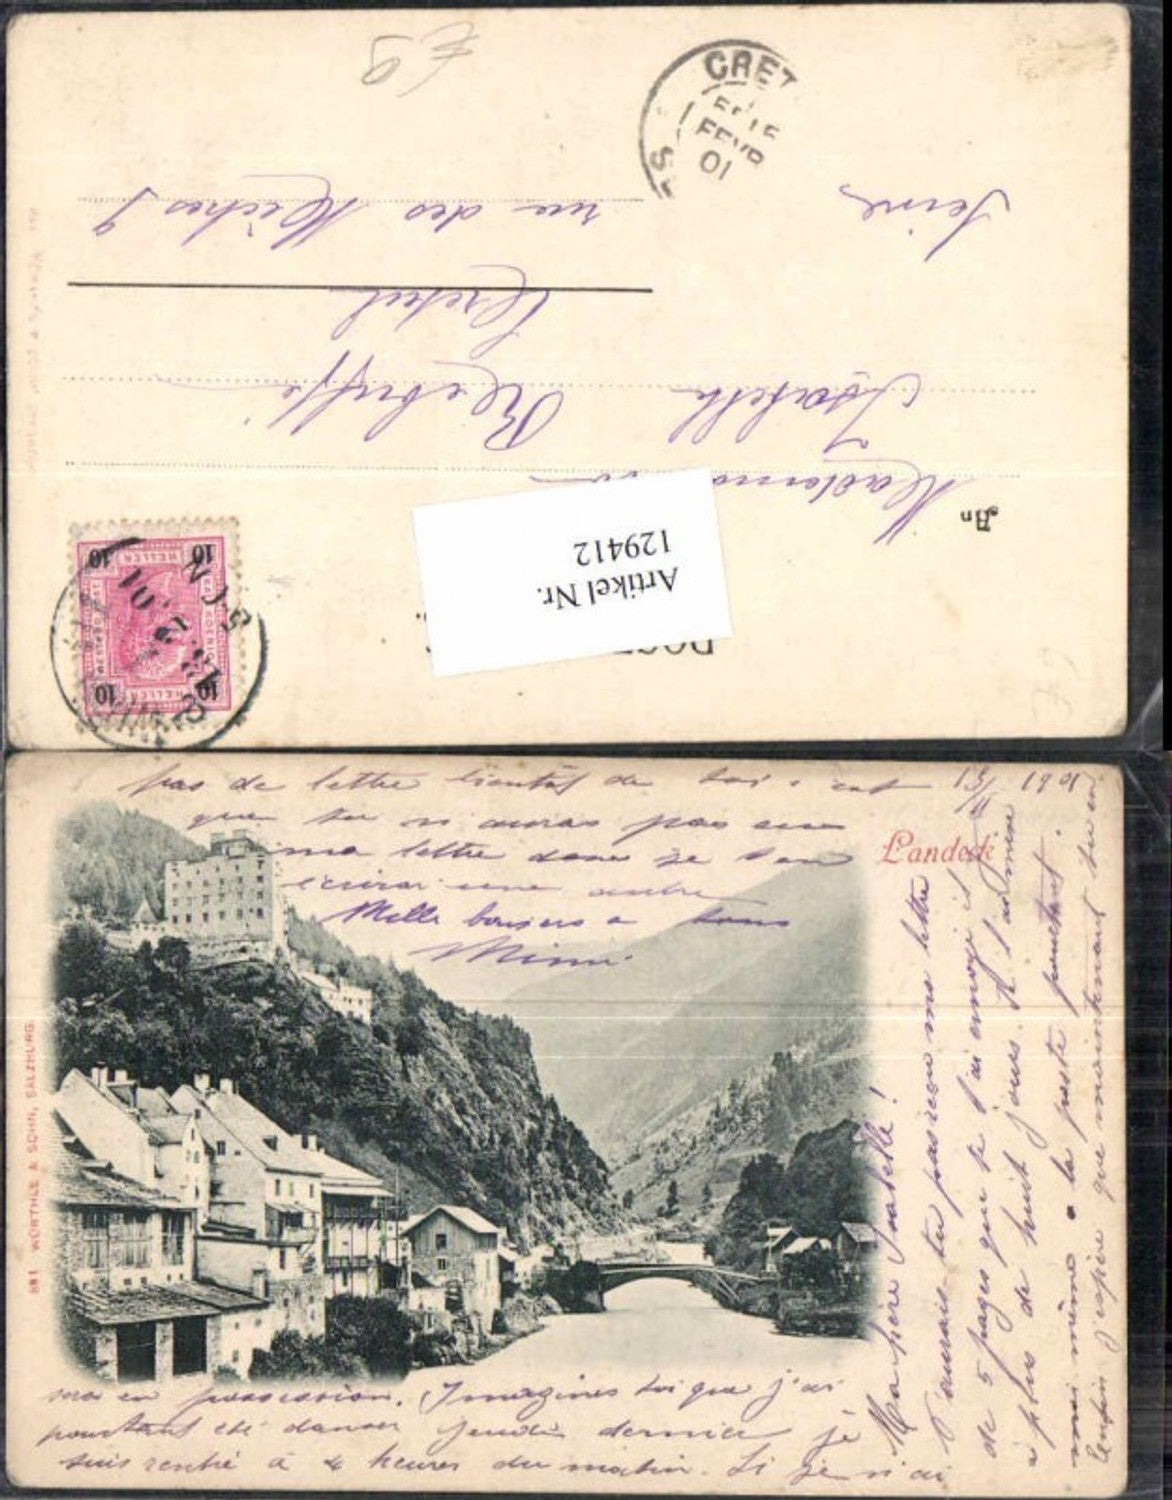 POST
An
Mademo
Isabelle Rebuffé
Créteil
rue des Mèches 9
Seine
CRET
FEVR
01
HELLER
10 10
10 10
Artikel Nr.
129412
£ 9
13/II 1901
Landeck
Ma chère Isabelle!
N'aurais-tu pas reçu ma lettre
de 5 pages que je t'ai envoyé il y
a plus de huit jours. Je l'ai mise
moi même à la poste pourtant.
Enfin j'espère que maintenant tu en
sera en possession. Imagines toi que j'ai
pourtant été danser jeudi dernier je
suis rentré à 4 heures du matin. Si je n'ai
pas de lettre bientôt de toi c'est
que tu n'auras pas eu
ma lettre donc je t'en
écrirai une autre
Mille baisers à tous
Mimi.
881 WÜRTHLE & SOHN, SALZBURG.